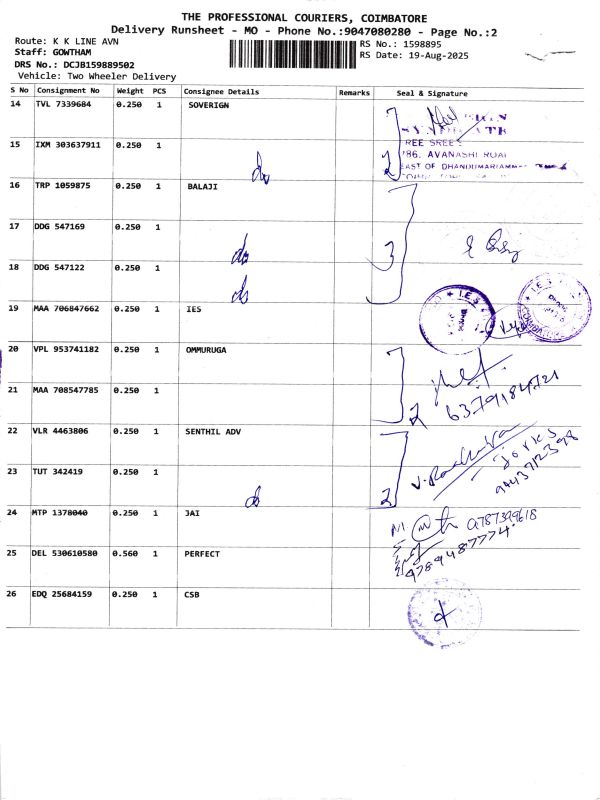 THE PROFESSIONAL COURIERS, COIMBATORE
Delivery Runsheet - MO - Phone No.:9047080280 - Page No.:2
Route: K K LINE AVN
Staff: GOWTHAM
DRS No.: DCJB159889502
Vehicle: Two Wheeler Delivery
RS No.: 1598895
RS Date: 19-Aug-2025
S No Consignment No Weight PCS Consignee Details Remarks Seal & Signature
14 TVL 7339684 0.250 1 SOVERIGN
15 IXM 303637911 0.250 1 do
2
REE SREE
786, AVANASHI ROAD
EAST OF DHANDUMARIAMM
16 TRP 1059875 0.250 1 BALAJI
17 DDG 547169 0.250 1 do
3
18 DDG 547122 0.250 1 do
19 MAA 706847662 0.250 1 IES
I.E.S
20 VPL 953741182 0.250 1 OMMURUGA
21 MAA 708547785 0.250 1
2 6379184721
22 VLR 4463806 0.250 1 SENTHIL ADV
23 TUT 342419 0.250 1 do
2
9443712398
24 MTP 1378040 0.250 1 JAI
9787399618
25 DEL 530610580 0.560 1 PERFECT
9789487774
26 EDQ 25684159 0.250 1 CSB